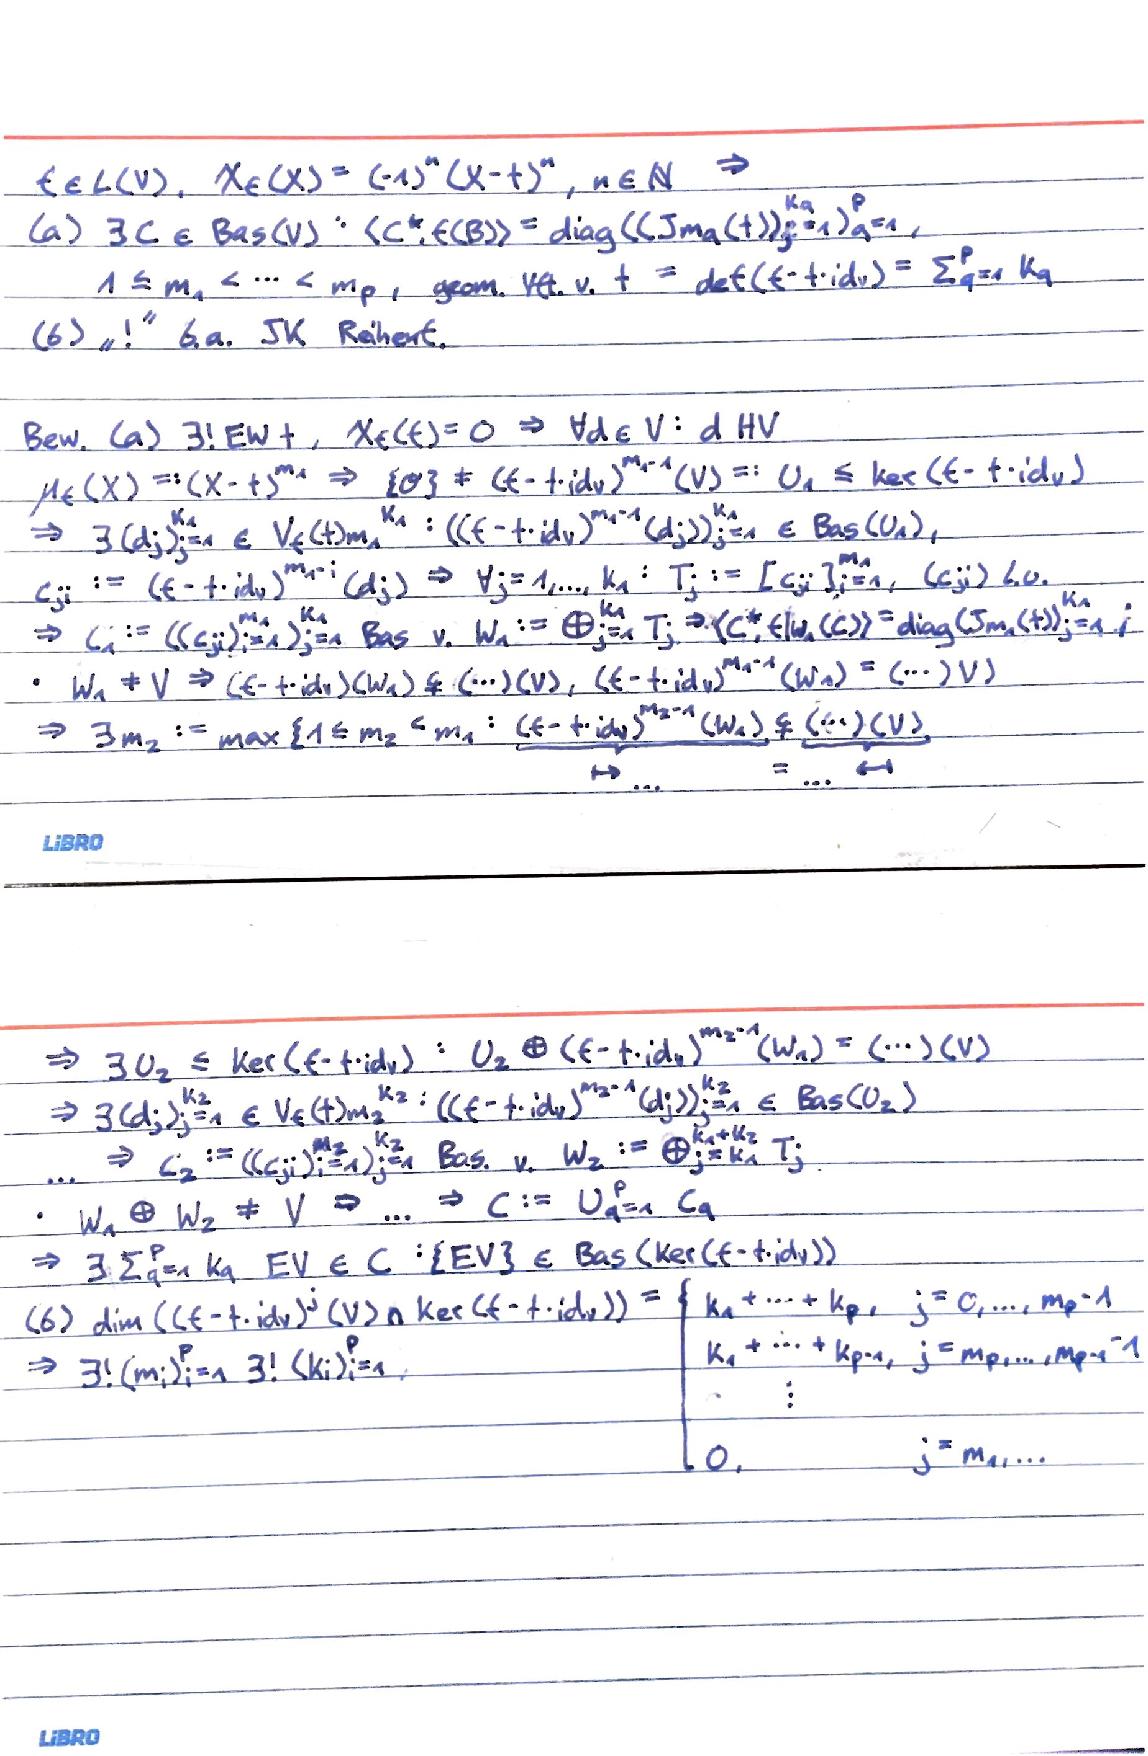 f ∈ L(V), χ_f(X) = (-1)^n (X-t)^n, n ∈ ℕ ⇒
(a) ∃ C ∈ Bas(V) : ⟨C*, f(B)⟩ = diag((J_{m_q}(t))_{j=1}^{k_q})_{q=1}^p,
1 ≤ m_1 < ⋯ < m_p, geom. Vft. v. t = def(f-t·id_V) = Σ_{q=1}^p k_q
(b) „!“ b.a. JK Reihenf.
Bew. (a) ∃! EW t, χ_f(f) = 0 ⇒ ∀d ∈ V : d HV
μ_f(X) =: (X-t)^{m_1} ⇒ {o} ≠ (f-t·id_V)^{m_1-1}(V) =: U_1 ≤ ker(f-t·id_V)
⇒ ∃(d_j)_{j=1}^{k_1} ∈ V_f(t)_{m_1}^{k_1} : ((f-t·id_V)^{m_1-1}(d_j))_{j=1}^{k_1} ∈ Bas(U_1),
c_{ji} := (f-t·id_V)^{m_1-i}(d_j) ⇒ ∀j=1,...,k_1 : T_j := [c_{ji}]_{i=1}^{m_1}, (c_{ji}) l.u.
⇒ C_1 := ((c_{ji})_{i=1}^{m_1})_{j=1}^{k_1} Bas v. W_1 := ⊕_{j=1}^{k_1} T_j ⇒ ⟨C*, f|_{W_1}(C)⟩ = diag(J_{m_1}(t))_{j=1}^{k_1} ;
• W_1 ≠ V ⇒ (f-t·id_V)(W_1) ⊊ (⋯)(V), (f-t·id_V)^{m_1-1}(W_1) = (⋯)V)
⇒ ∃ m_2 := max {1 ≤ m_2 < m_1 : (f-t·id_V)^{m_2-1}(W_1) ⊊ (⋯)(V)
↦ ... = ... ↤
LiBRO
⇒ ∃ U_2 ≤ ker(f-t·id_V) : U_2 ⊕ (f-t·id_V)^{m_2-1}(W_1) = (⋯)(V)
⇒ ∃(d_j)_{j=1}^{k_2} ∈ V_f(t)_{m_2}^{k_2} : ((f-t·id_V)^{m_2-1}(d_j))_{j=1}^{k_2} ∈ Bas(U_2)
... ⇒ C_2 := ((c_{ji})_{i=1}^{m_2})_{j=1}^{k_2} Bas. v. W_2 := ⊕_{j=k_1}^{k_1+k_2} T_j
• W_1 ⊕ W_2 ≠ V ⇒ ... ⇒ C := ∪_{q=1}^p C_q
⇒ ∃ Σ_{q=1}^p k_q EV ∈ C : {EV} ∈ Bas(ker(f-t·id_V))
(b) dim((f-t·id_V)^j(V) ∩ ker(f-t·id_V)) = { k_1 + ⋯ + k_p, j = 0,..., m_p-1
⇒ ∃!(m_i)_{i=1}^p ∃!(k_i)_{i=1}^p. k_1 + ⋯ + k_{p-1}, j = m_p,...,m_{p-1}-1
⋮
0, j = m_1,...
LiBRO